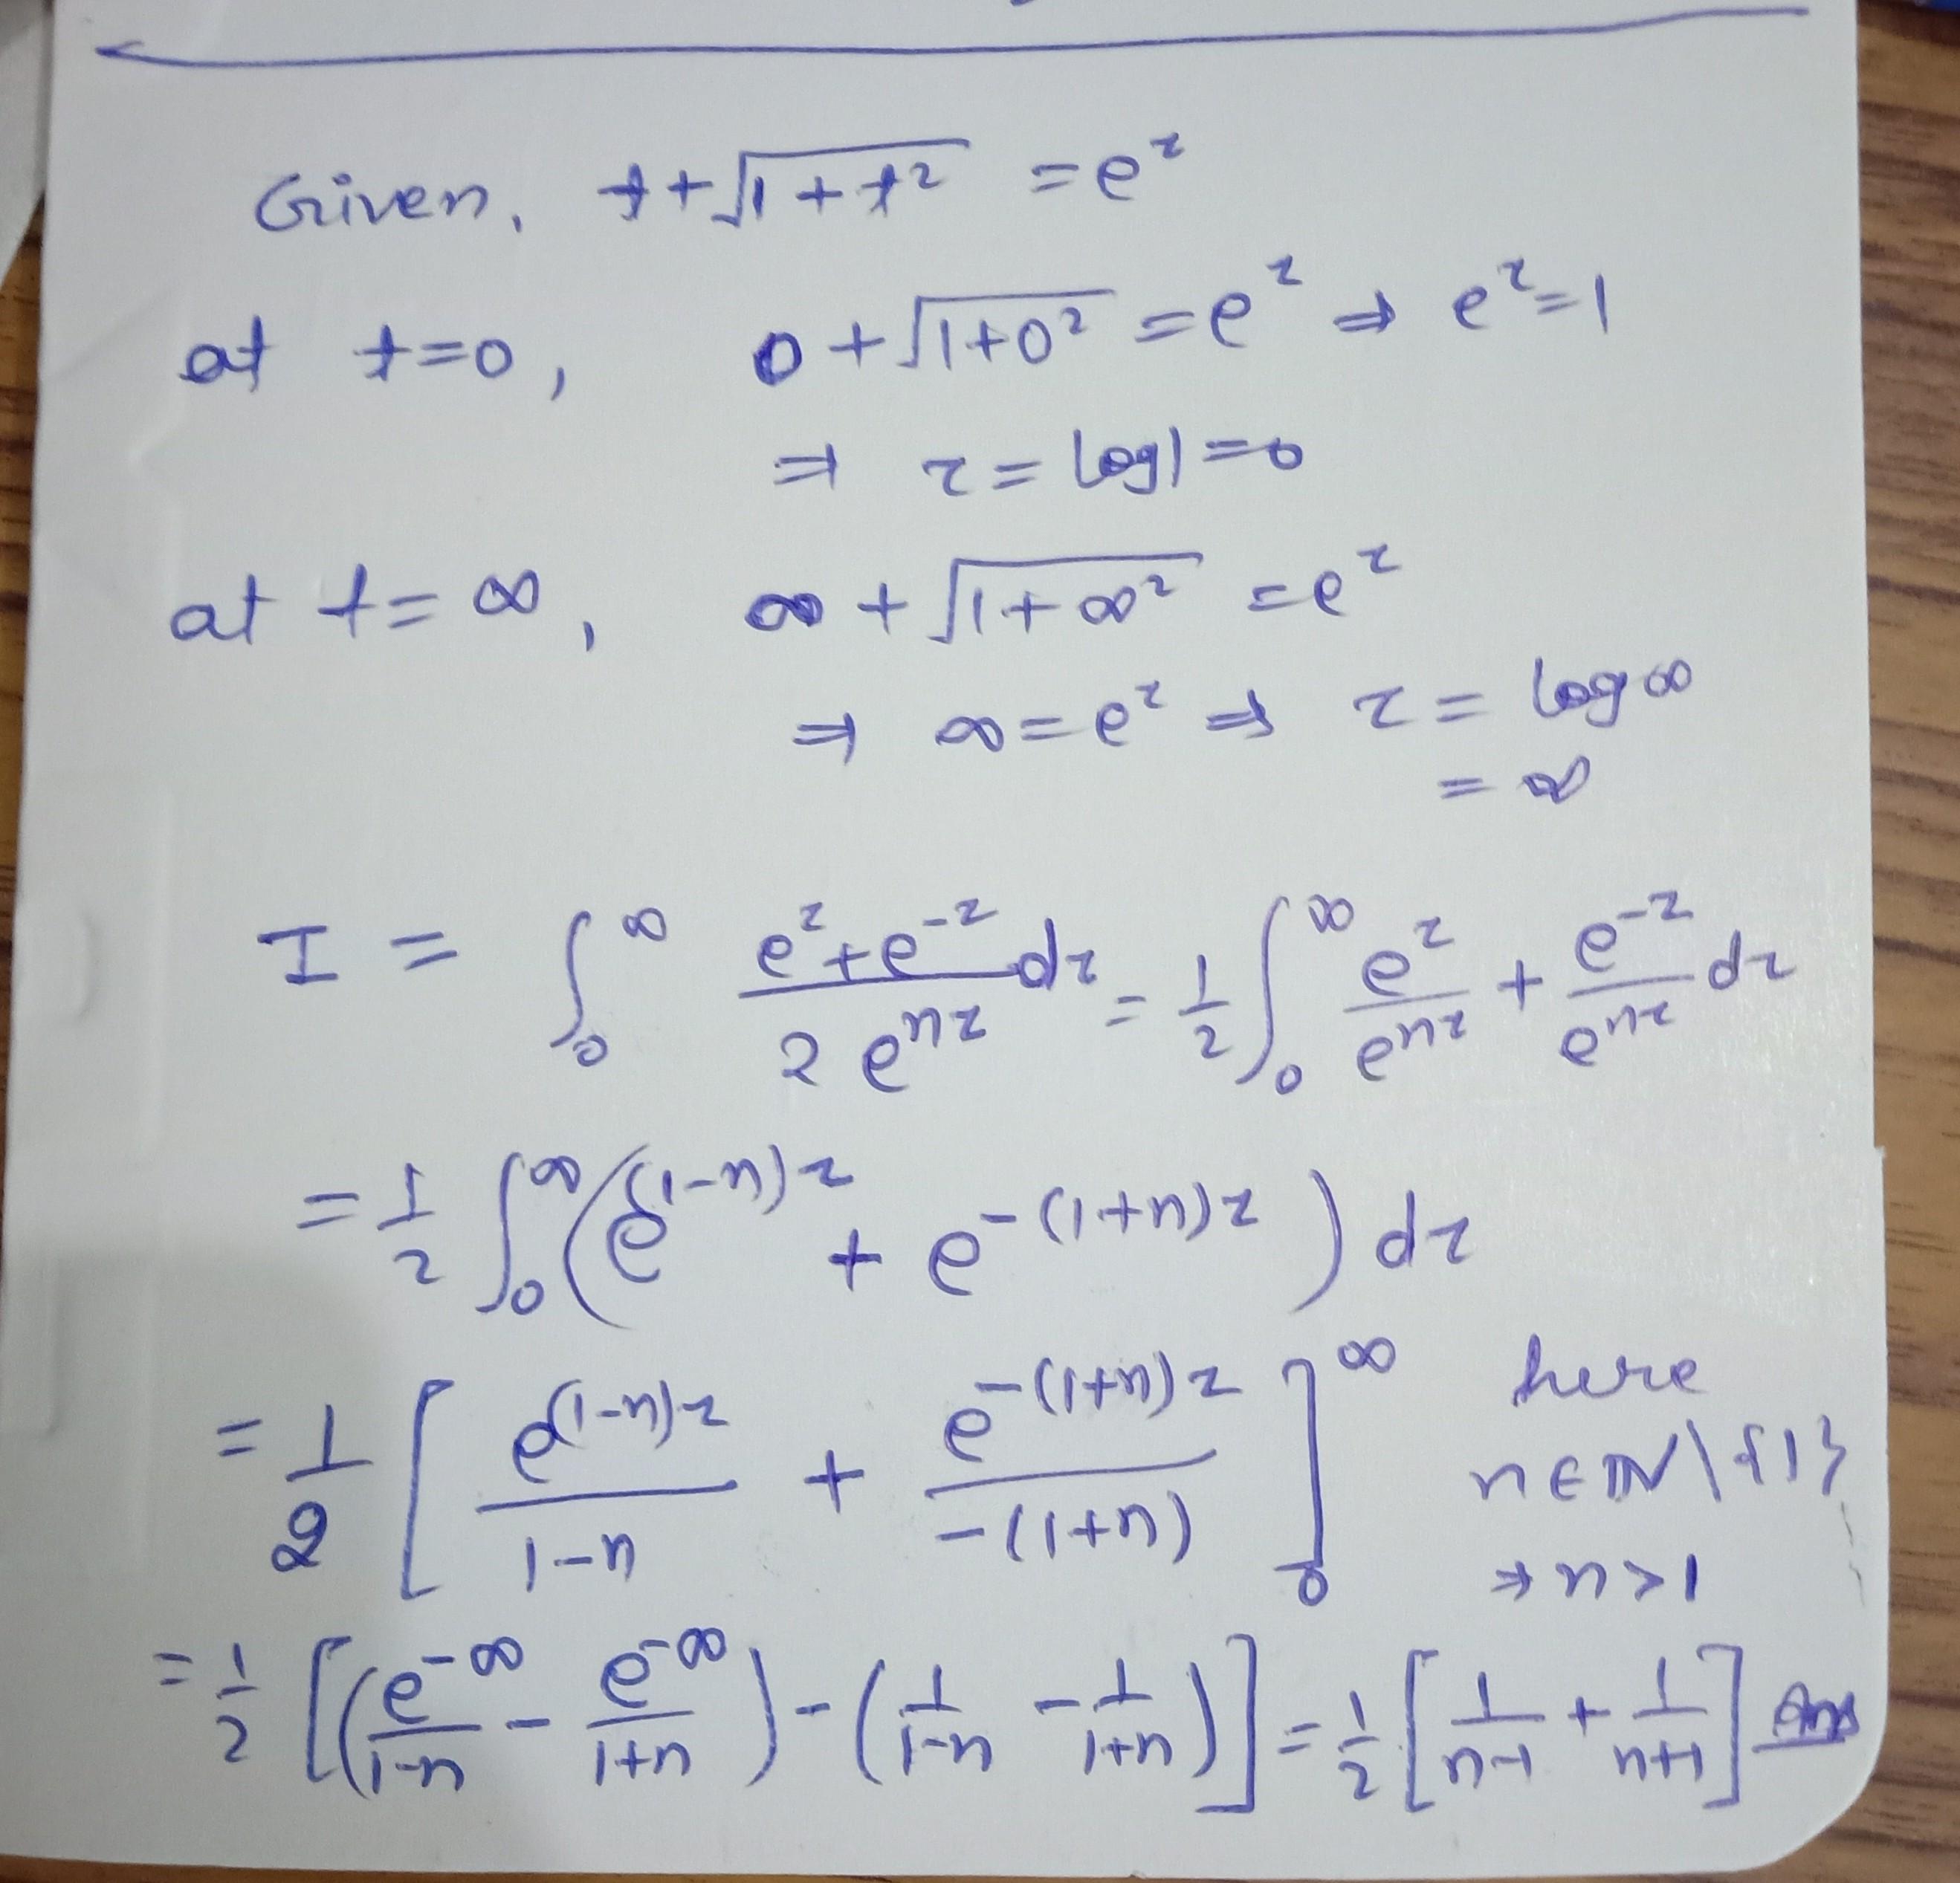 Given, t+√(1+t²) = e^z
at t=0, 0+√(1+0²) = e^z ⇒ e^z=1
⇒ z = log1 = 0
at t=∞, ∞+√(1+∞²) = e^z
⇒ ∞ = e^z ⇒ z = log∞
= ∞
I = ∫₀^∞ (e^z+e^-z)/(2 e^nz) dz = 1/2 ∫₀^∞ e^z/e^nz + e^-z/e^nz dz
= 1/2 ∫₀^∞ (e^(1-n)z + e^-(1+n)z) dz
= 1/2 [ e^(1-n)z/(1-n) + e^-(1+n)z/(-(1+n)) ]₀^∞ here
n∈ℕ\{1}
⇒ n>1
= 1/2 [(e^-∞/(1-n) - e^-∞/(1+n)) - (1/(1-n) - 1/(1+n))] = 1/2 [1/(n-1) + 1/(n+1)] Ans